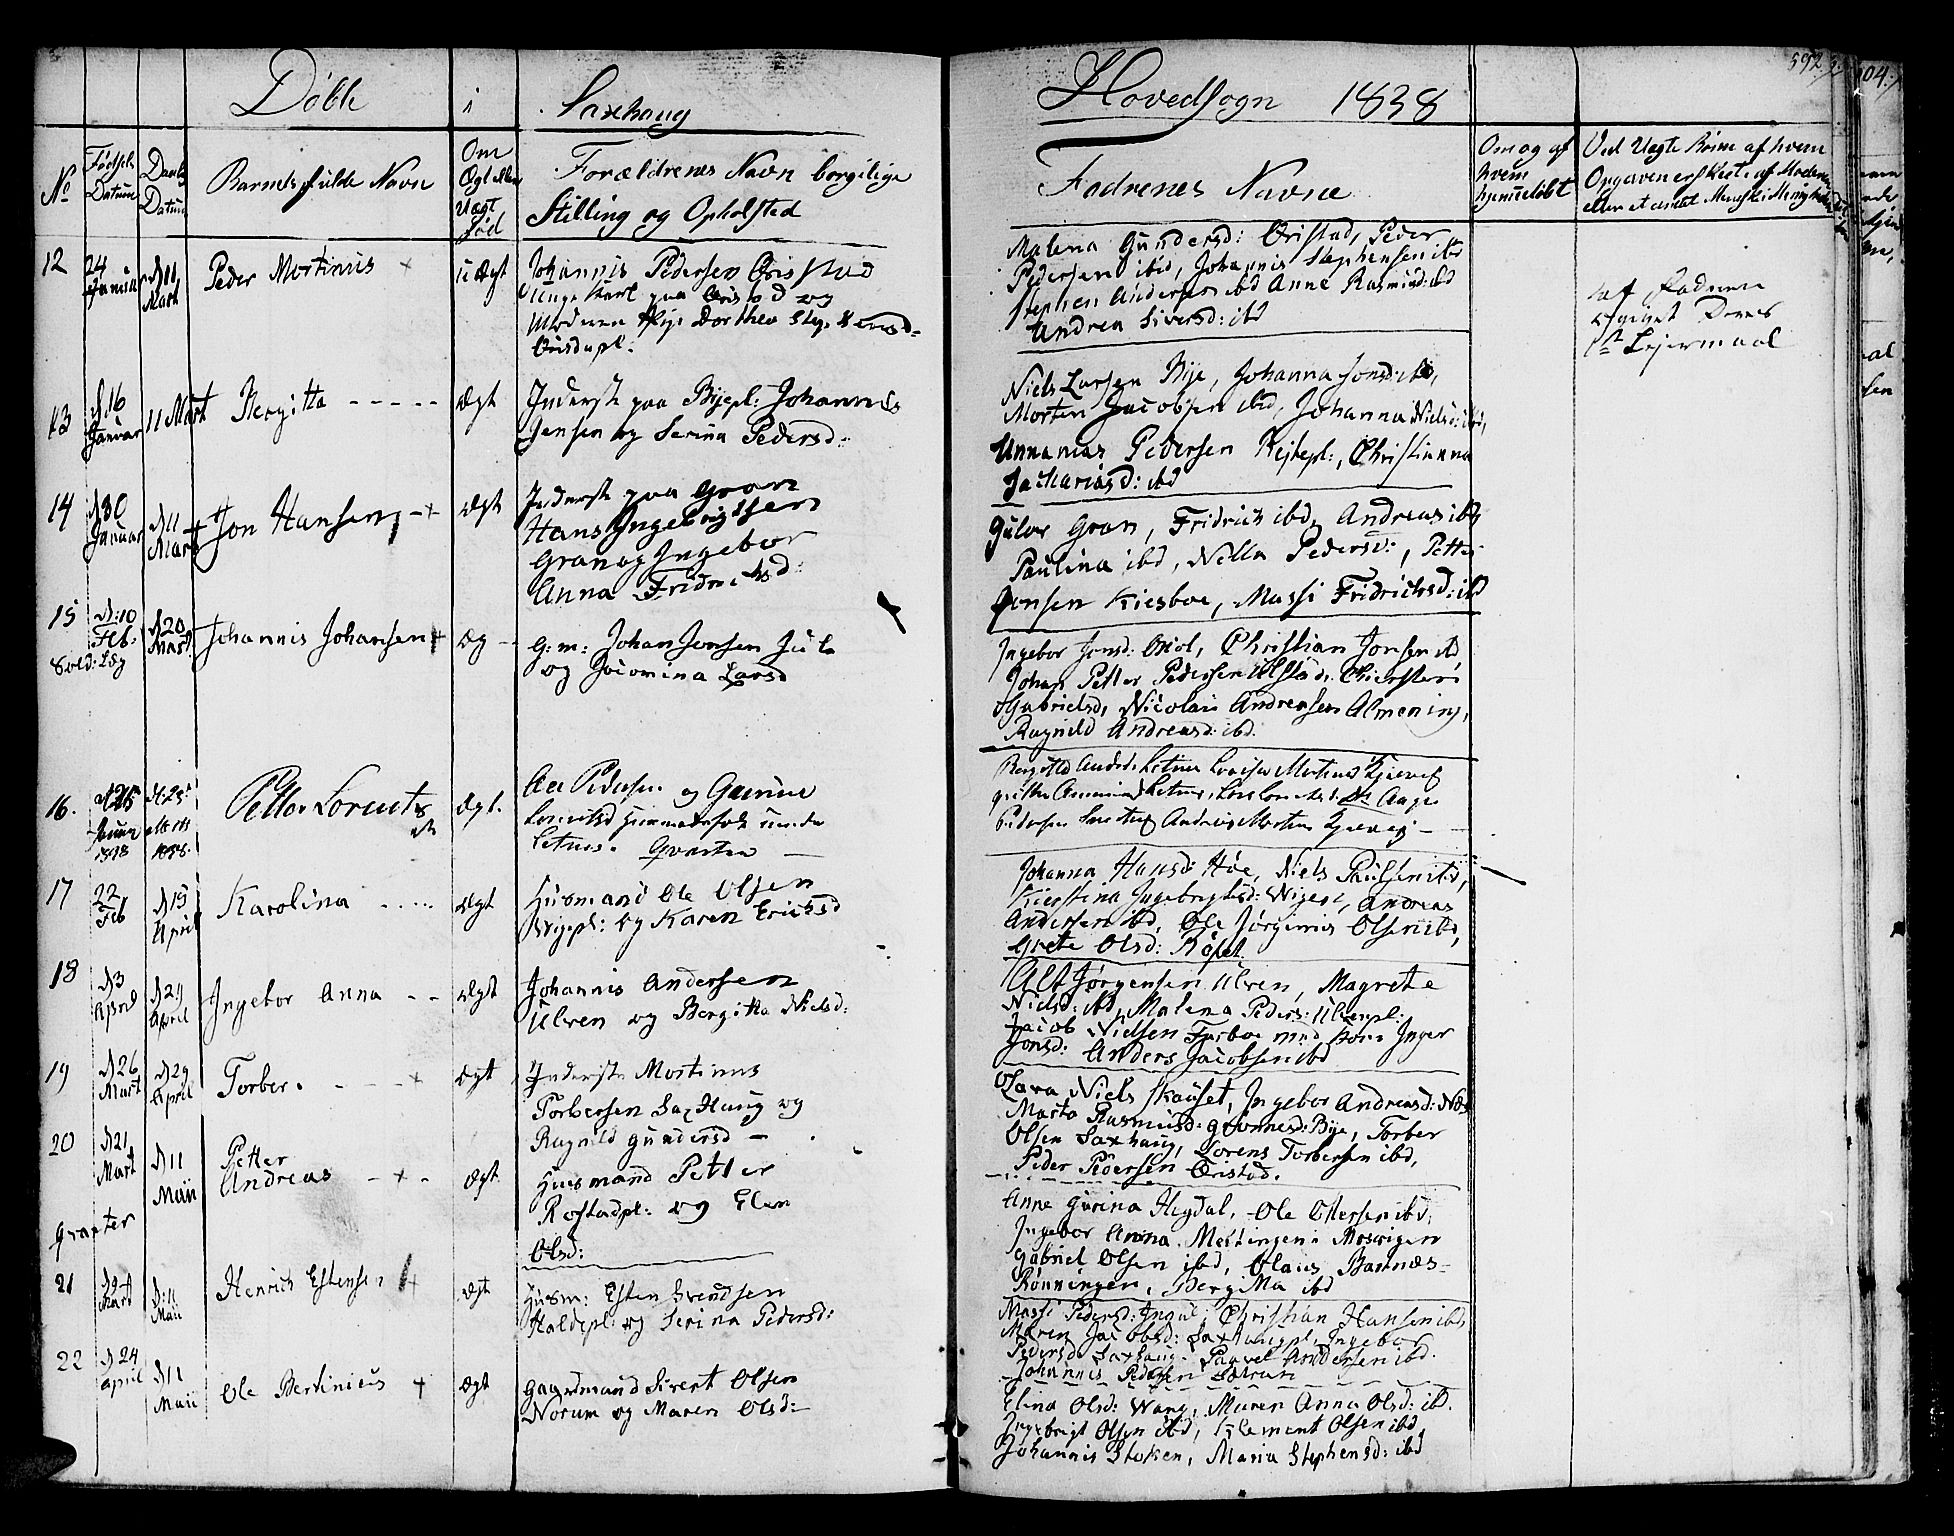 Døbte i Saxhaug
Hovedsogn 1838
592
104
No
Fødsels Datum
Daabs Datum
Barnets fulde Navn
Om Ægt eller Uægt fød
Forældrenes Navn borgilige
Stilling og Opholsted
Fadrenes Navne
Om og af hvem hjemmedøbt
Ved Uægte Børn af hvem
Opgaven er skeet, af Moderen
eller et andet Menneske i Menigheden
12 24 Januar d 11 Mart Peder Mortinus + uægt
Johannis Pedersen Òristad
Ungekarl paa
Moderen
Malena Gundersd: Òristad, Peder
Pedersen ibd, Johannis Stephensen ibd
Stephen Andersen ibd Anne Rasmusd: ibd
Andrea Siversd: ibd
af Fadrene
Lejermaal
13 d 16 Januar 11 Mart Bergitta - - - - - Ægt
Inderst paa Bijepl: Johannes
Jensen og Serina Pedersd:
Niels Larsen Bije, Johanna Jonsd: ibd,
Morten Jacobsen ibd, Johanna Nielsd: ibd,
Annanias Pedersen Rejtepl:, Christianna
Zachariasd: ibd
14 d 30 Januar d 11 Mart Jon Hansen - + Ægt
Inderst paa Gran
Hans Ingebrigtsen
Gran og Ingebor
Anna Fridrichsd:
Gulov Gran, Fridrich ibd, Andreas ibd,
Paulina ibd, Nella Pedersd:, Petter
Jonsen Kiesboe, Massi Fridrichsd: ibd
15 d: 10 Feb: d 20 Mart Johannis Johansen + Æg -
G: m: Johan Jonsen
og Jocomina Larsd
Ingebor Jonsd: Christian Jonsen ibd
Johan Petter Pedersen
Gabrielsd, Nicolai Andreasen Almening,
Ragnild Andreasd: ibd.
16. d 25 Januar 1838 d: 25 Marts 1838 Petter Lorents Ægt.
Pedersen og Gurine
Lorentsd Huusmandsfolk under
Letnes. Qvarter
17 22 Feb d 15 April Karolina - - - - Ægt
Husmand Ole Olsen
Wigepl: og Karen Ericksd
Johanna Hansd: Høe, Niels Paulsen ibd,
Kierstina Ingebrigtsd: Wigen, Andreas
Andersen ibd, Ole Jørginus Olsen ibd,
Grete Olsd:
18 d 3 April d 29 April Ingebor Anna - - Ægt
Johannis Andersen
Ulven og Bergitta Nielsd:
Alt Jørgensen Ulven, Magrete
Nielsd: ibd, Malena Peders: Ulvenpl:
Jacob Nielsen med Inger
Jonsd: Anders Jacobsen ibd
19 d 26 Mart d 29 April Torber. - - - + Ægt
Inderste Mortinus
Torbersen Saxhaug og
Ragnild Gundersd -
Niels Skauset, Ingebor Andreasd:
Marta Rasmusd: Bije, Torber
Olsen Saxhaug, Lorens Torbersen ibd,
Peder Pedersen Òristad.
20 d 21 Mart d 11 Maii Petter Andreas - + - Ægt
qvarter
Husmand Petter
Rostadpl: og Elen
Olsd:
Anne Gurina Hegdal, Ole Ottersen ibd,
Ingebor Anna
Gabriel Olsen ibd, Olaus Barnæs-
Rønningen, Bergitta ibd
21 Mart d: 11 Maii Henrich Estensen + Ægt
Husm: Esten Svendsen
Haldepl: og Serina Pedersd:
Massi Pedersd: Christian Hansen ibd,
Maren Jacobsd: Saxhaugpl, Ingebor
Pedersd Saxhaug. Andersen ibd.
Johannis Pedersen
22 d 24 April d 11 Maii Ole Bertinius + Ægt
Gaardmand Sivert Olsen
Norum og Maren Olsd:
Elina Olsd: Wang, Maren Anna Olsd: ibd.
Ingebrigt Olsen ibd, Klement Olsen ibd
Johannis Stoken, Maria Stephensd: ibd